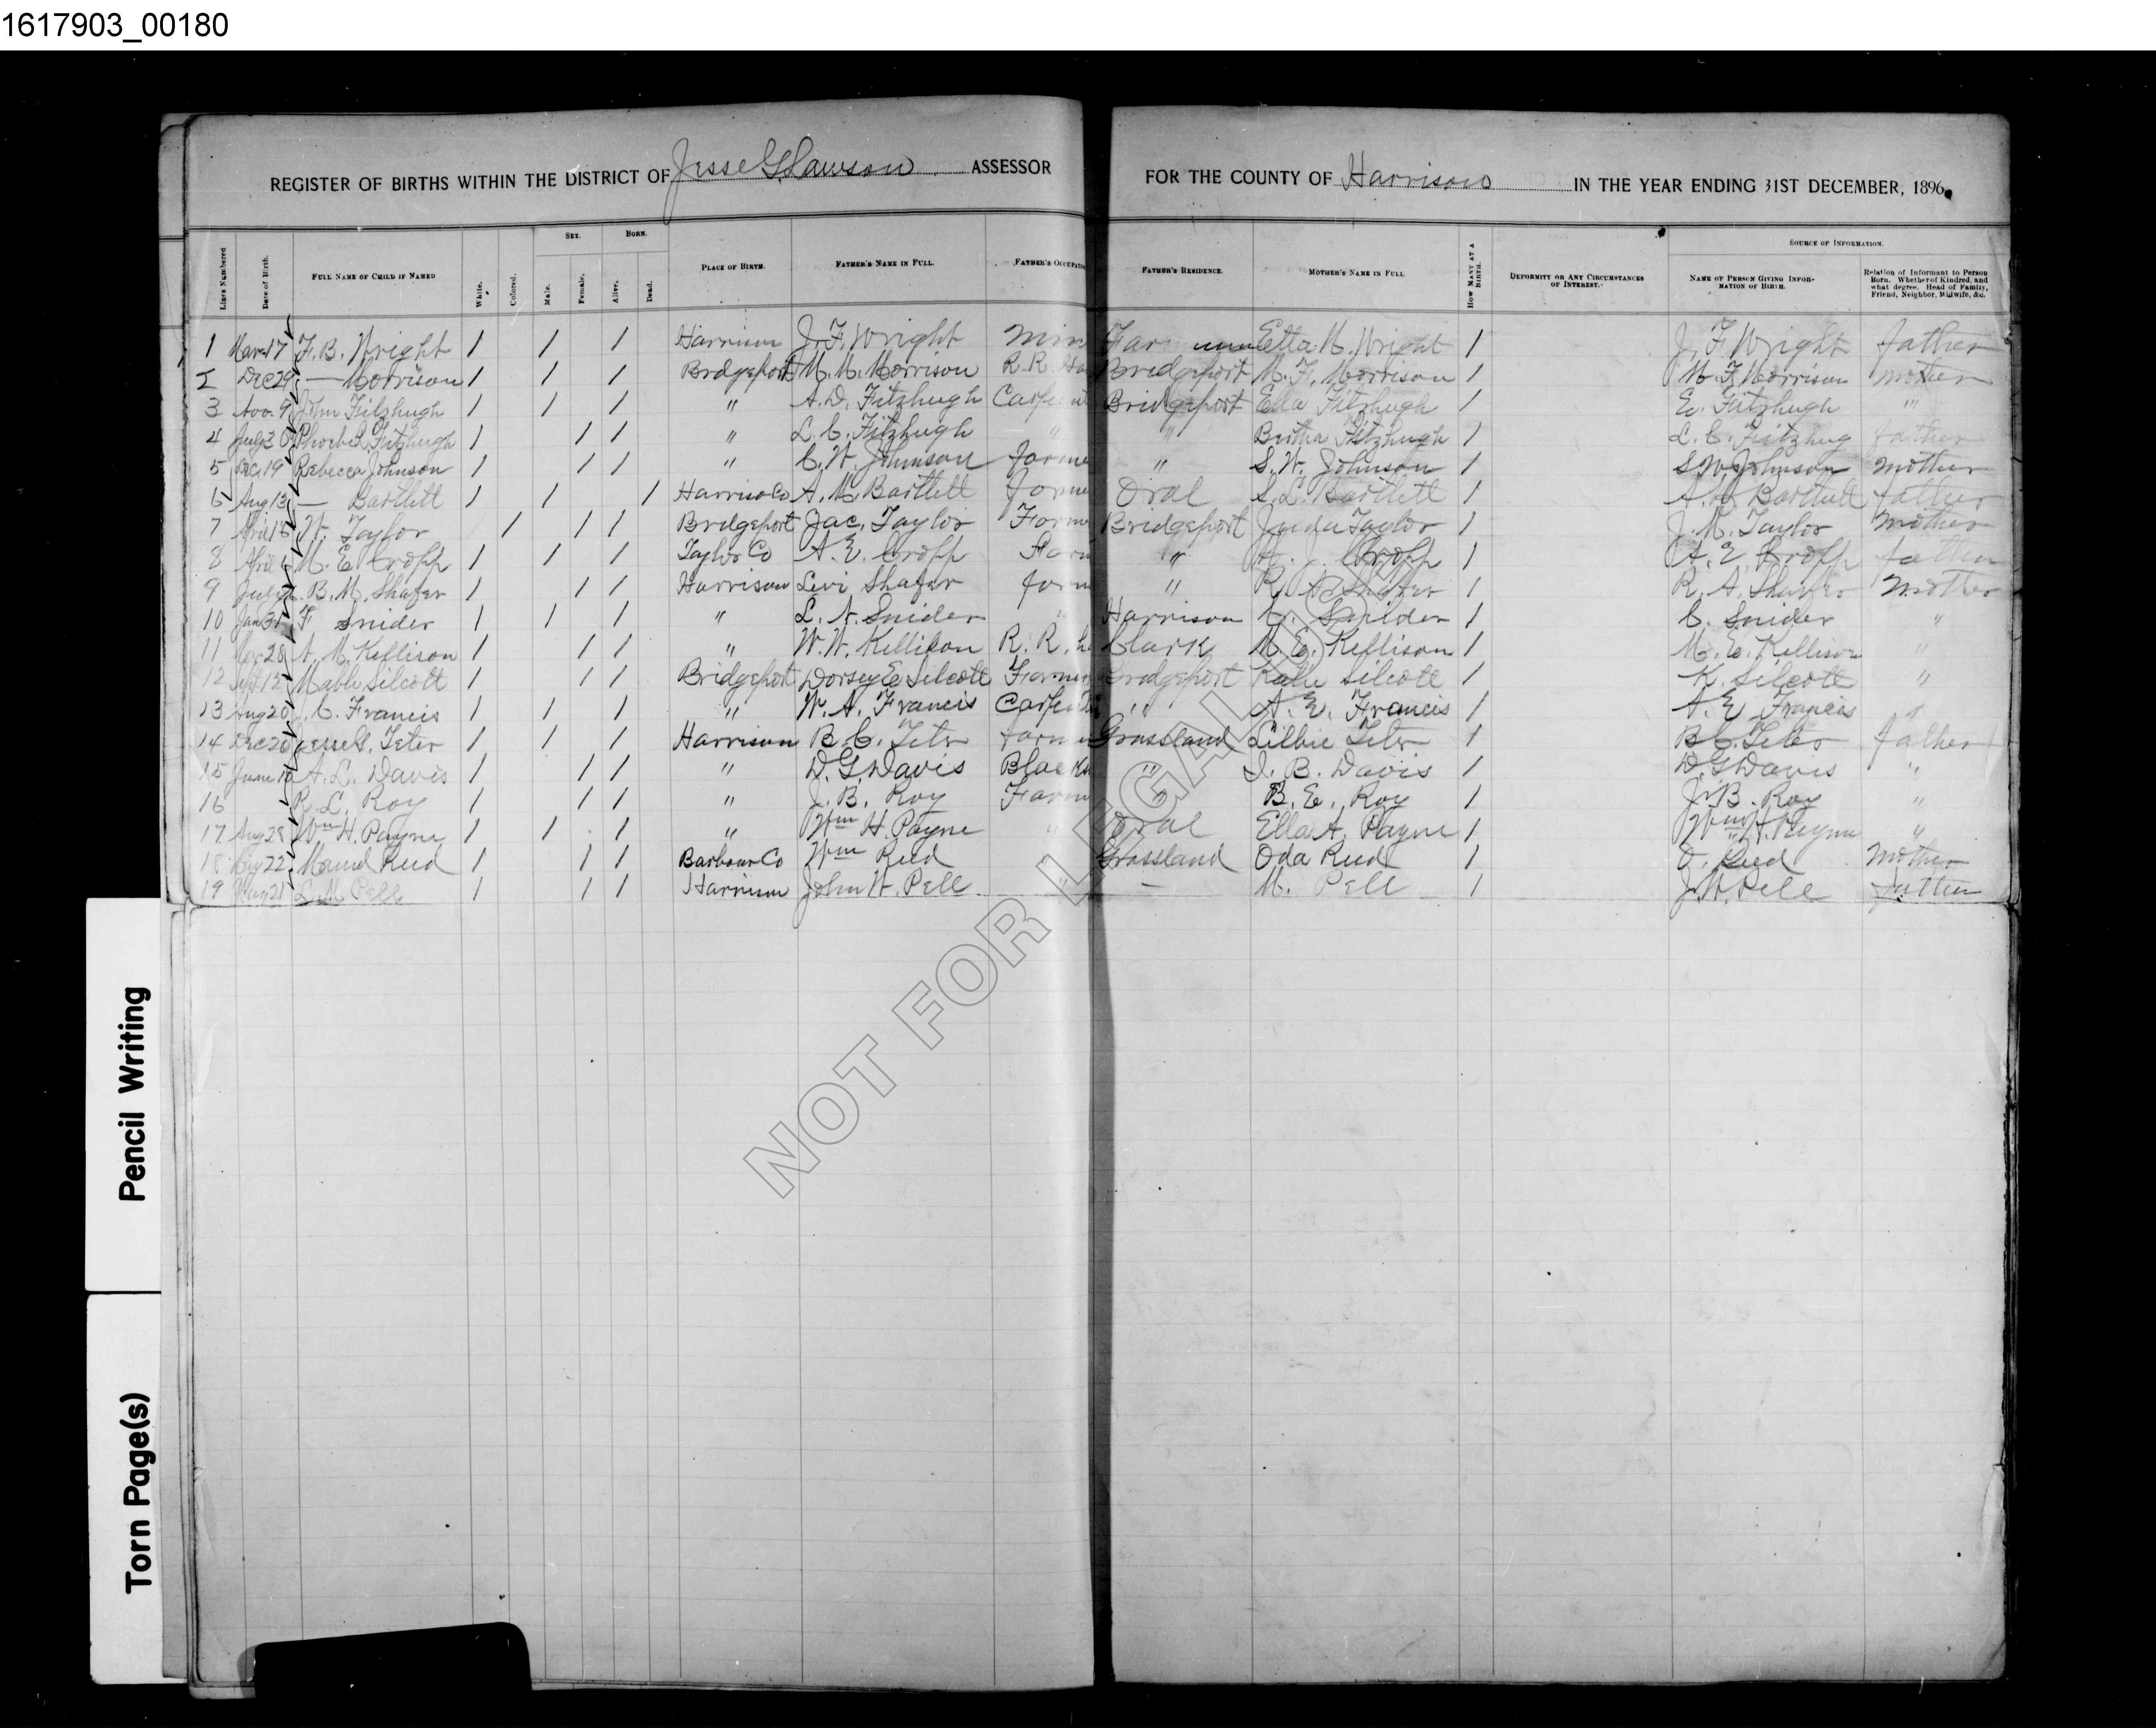 1617903_00180
REGISTER OF BIRTHS WITHIN THE DISTRICT OF Jesse G. Lawson ASSESSOR FOR THE COUNTY OF Harrison IN THE YEAR ENDING 31ST DECEMBER, 1896.
Lines Numbered Date of Birth. FULL NAME OF CHILD IF NAMED White. Colored. SEX. Male. Female. BORN. Alive. Dead. PLACE OF BIRTH. FATHER'S NAME IN FULL. FATHER'S OCCUPATION FATHER'S RESIDENCE. MOTHER'S NAME IN FULL. HOW MANY AT A BIRTH. DEFORMITY OR ANY CIRCUMSTANCES OF INTEREST. SOURCE OF INFORMATION. NAME OF PERSON GIVING INFORMATION OF BIRTH. Relation of Informant to Person Born. Whether of Kindred, and what degree, Head of Family, Friend, Neighbor, Midwife, &c.
1 Mar 17 F. B. Wright 1 1 1 Harrison J. F. Wright Etta M. Wright 1 J. F. Wright father
2 Dec 29 — Morrison 1 1 1 Bridgeport M. M. Morrison R. R. Bridgeport M. F. Morrison 1 M. F. Morrison mother
3 Nov. 9 John Fitzhugh 1 1 1 " A. D. Fitzhugh Bridgeport Ella Fitzhugh 1 E. Fitzhugh "
4 July 30 Phoebe Fitzhugh 1 1 1 " L. C. Fitzhugh " " Bertha Fitzhugh 1 L. C. Fitzhug father
5 Dec. 19 Rebecca Johnson 1 1 1 " C. W. Johnson farme " S. W. Johnson 1 S W Johnson mother
6 Aug 13 — Bartlett 1 1 1 Harrison Co A. M. Bartlett farme Oral S. L. Bartlett 1 Bartlett father
7 April W. Taylor 1 1 1 Bridgeport Jac. Taylor Farme Bridgeport Taylor 1 J. M. Taylor Mother
8 April 6 M. E. Cropp 1 1 1 Taylor Co A. E. Cropp Farm " Cropp 1 A. E. Cropp father
9 July B. M. Shafer 1 1 1 Harrison Levi Shafer farm " R. A. Shafer 1 R. A. Shafer Mother
10 Jan 31 F Snider 1 1 1 " L. A. Snider " Harrison C. Snider 1 C. Snider "
11 28 A. M. Kellison 1 1 1 " W. W. Kellison R. R. Clark M. E. Kellison 1 M. E. Kellison "
12 Sept 12 Mable Silcott 1 1 1 Bridgeport Dorsey E Silcott Farmer Bridgeport Katie Silcott 1 K. Silcott "
13 Aug 20 C. Francis 1 1 1 " W. A. Francis " A. E. Francis 1 A. E. Francis "
14 Dec 20 Jesse G. Teter 1 1 1 Harrison B. C. Teter farme Grassland Lillie Teter 1 B C. Teter father
15 June A. L. Davis 1 1 1 " D. G. Davis Blacks " I. B. Davis 1 D. G Davis "
16 R. L. Roy 1 1 1 " J. B. Roy Farm " B. E. Roy 1 J. B. Roy "
17 Aug 28 Wm H. Payne 1 1 1 " Wm H. Payne " Oral Ella A. Payne 1 Wm H. Payne "
18 22 Maud Reed 1 1 1 Barbour Co Wm Reed Grassland Oda Reed 1 O. Reed Mother
19 May 21 L. M Pell 1 1 1 Harrison John W. Pell " — M. Pell 1 J. W. Pell father
NOT FOR LEGAL USE
Pencil Writing
Torn Page(s)